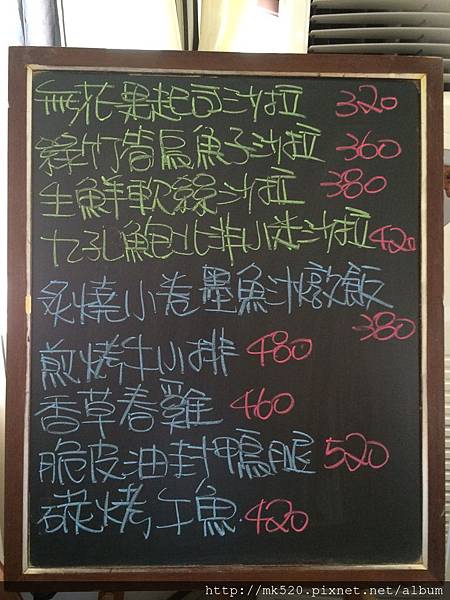 無花果起司沙拉 320
綠竹筍烏魚子沙拉 360
生鮮軟絲沙拉 380
九孔鮑北非小米沙拉 420
炙燒小卷墨魚汁燉飯
380
煎烤牛小排 480
香草春雞 460
脆皮油封鴨腿 520
碳烤午魚 420
http://mk520.pixnet.net/album